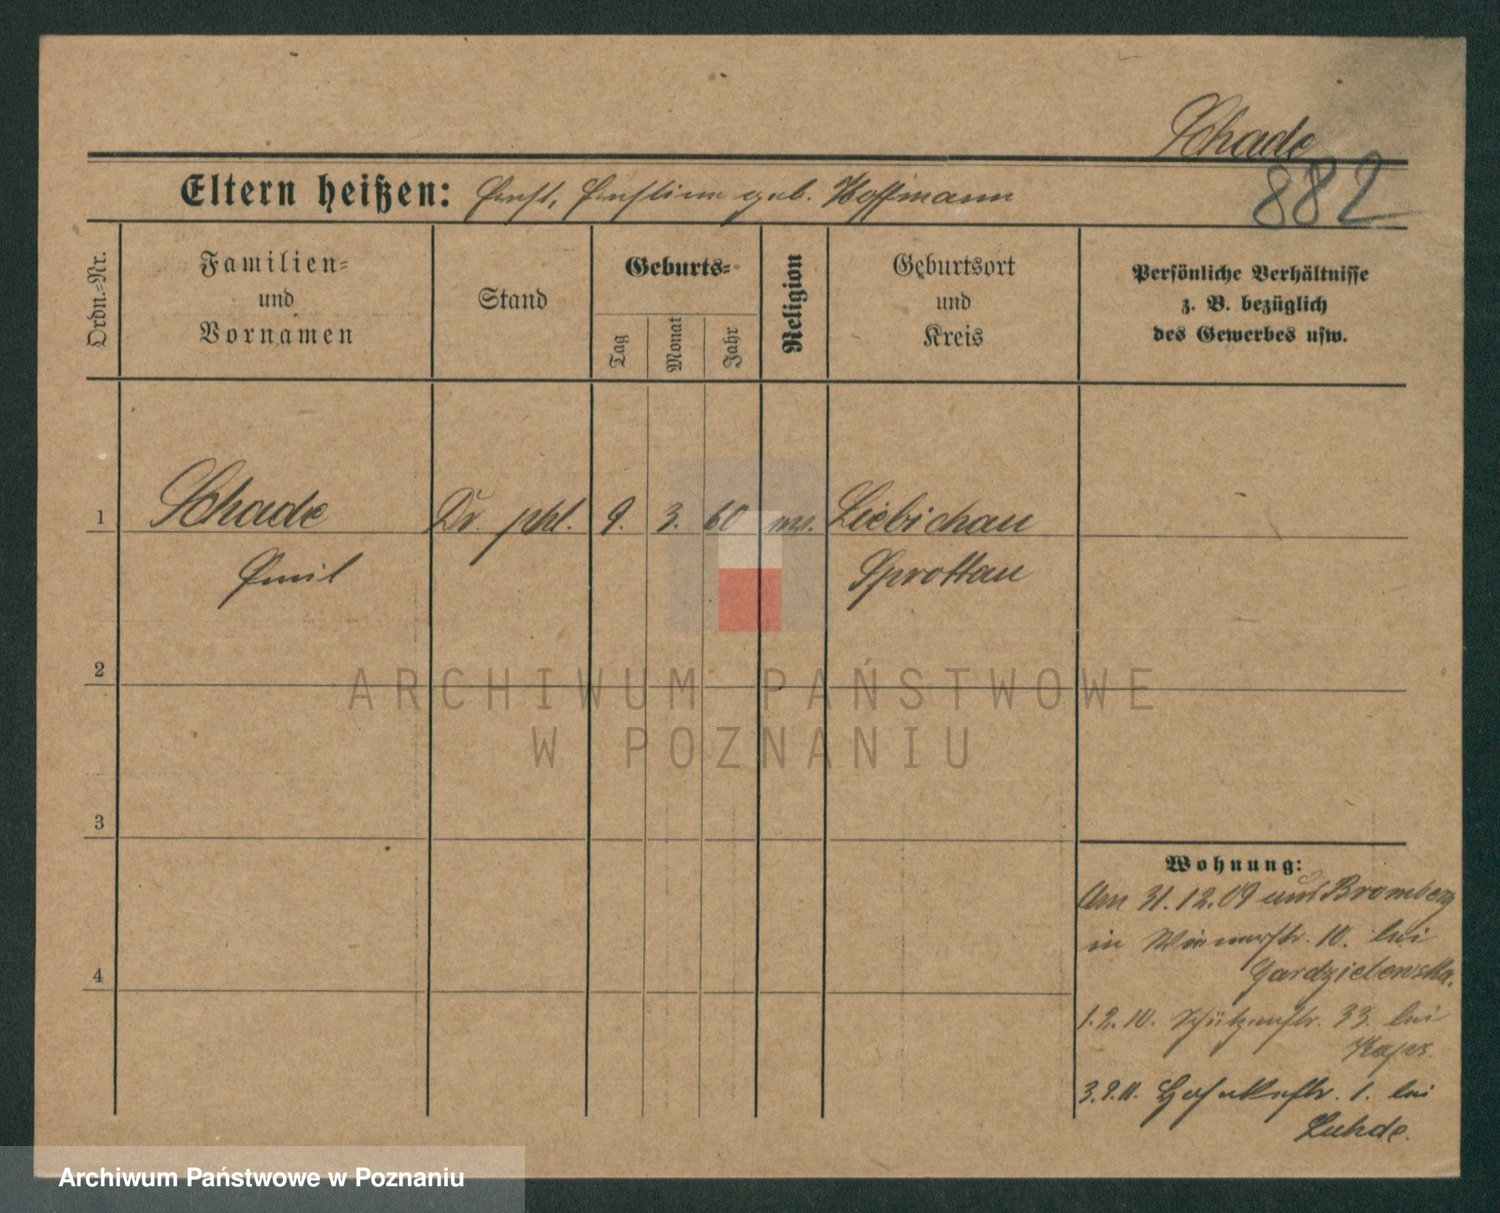 Schade
882
Eltern heißen: Ernst, Ernstine geb. Hoffmann
Ordn.-Nr.
Familien-
und
Vornamen
Stand
Geburts-
Tag
Monat
Jahr
Religion
Geburtsort
und
Kreis
Persönliche Verhältnisse
z. B. bezüglich
des Gewerbes usw.
1 Schade Dr. phl. 9. 3. 60 ev. Liebichau
Emil Sprottau
2
ARCHIWUM PAŃSTWOWE
W POZNANIU
3
Wohnung:
Am 31.12.09 aus Bromberg
in Wienerstr. 10. bei
Gardzielewska.
4
1.2.10. Schützenstr. 33. bei
Kaps.
3.9.11. bei
Luhde.
Archiwum Państwowe w Poznaniu